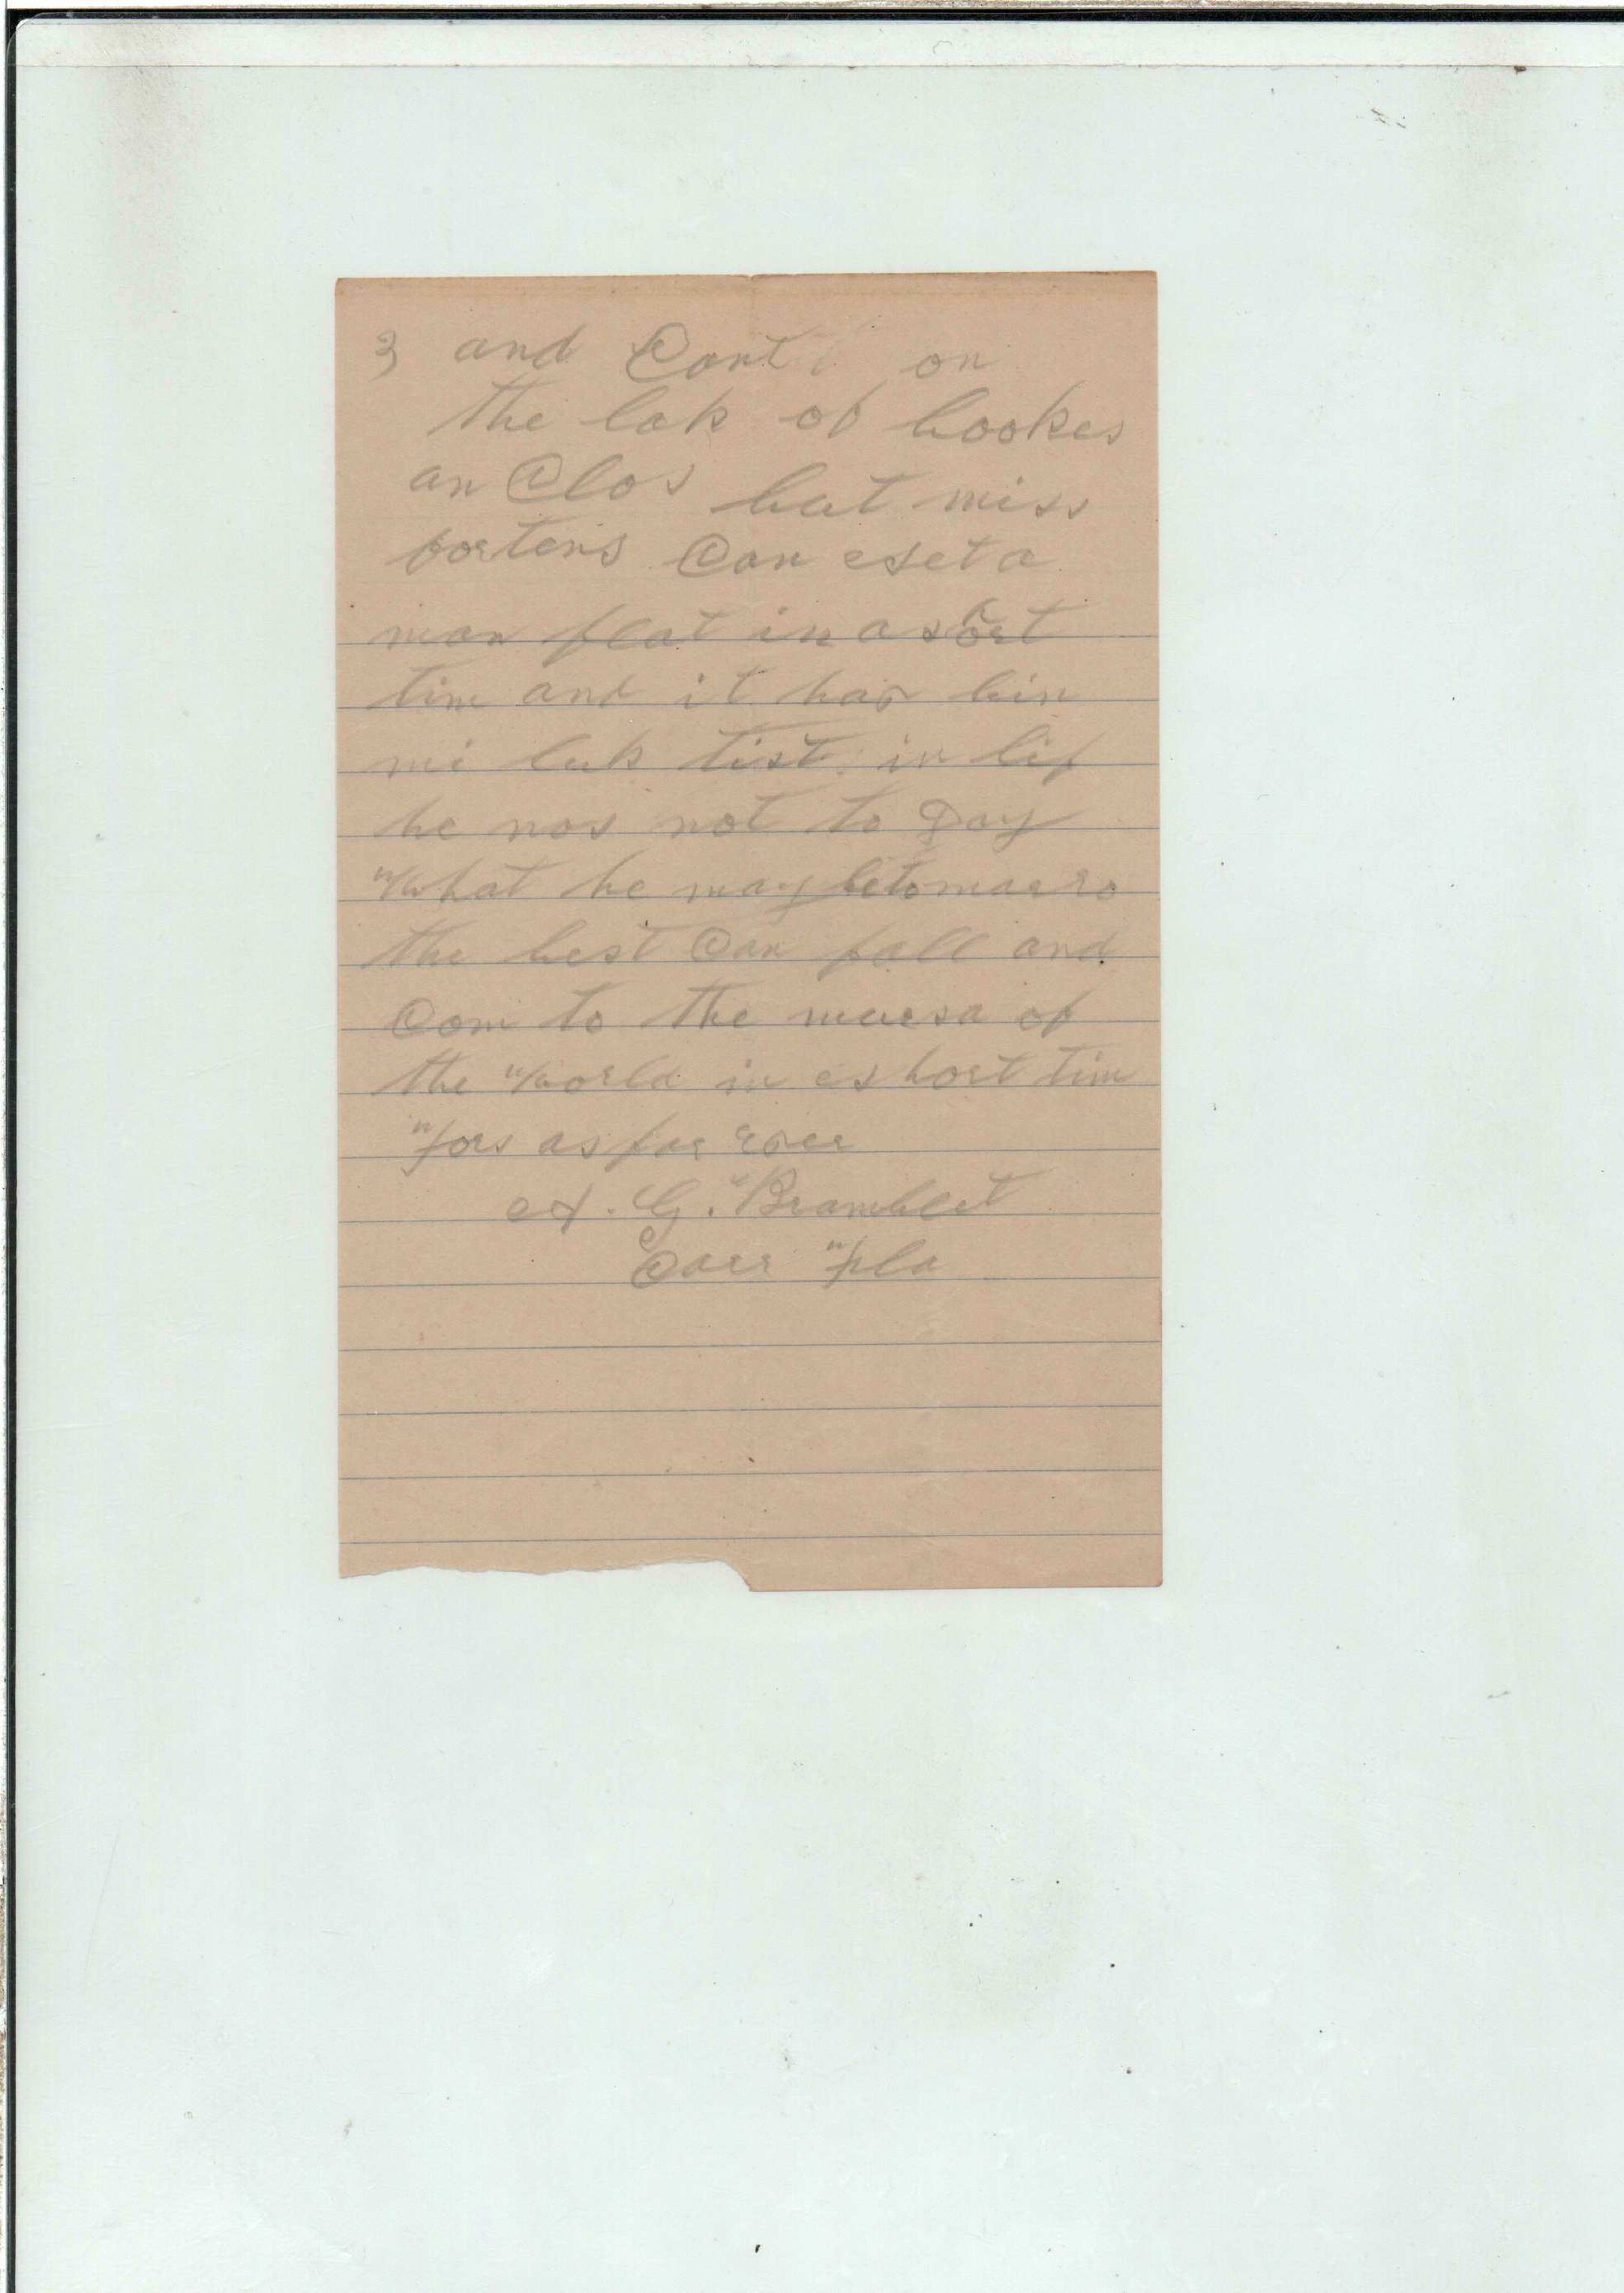 3 and Cant on
the lak of bookes
an Clos but miss
fortens Can eset a
man flat in a short
tim and it has bin
mi luk tist in lif
he nos not to Day
What he may be tomarro
the best Can fall and
Com to the mersa of
the World in eshort tim
yors as far ever
A. G. Bramblet
Carr Fla